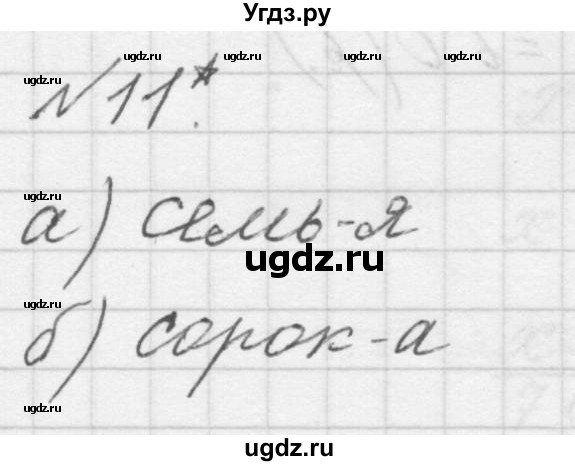 Угдз.ру
ugdz.ru ugdz.ru ugdz.ru ugdz.ru
ugdz.ru
№11*.
ugdz.ru
ugdz.ru
а) семь-я
ugdz.ru
ugdz.ru
б) сорок-а
ugdz.ru
ugdz.ru